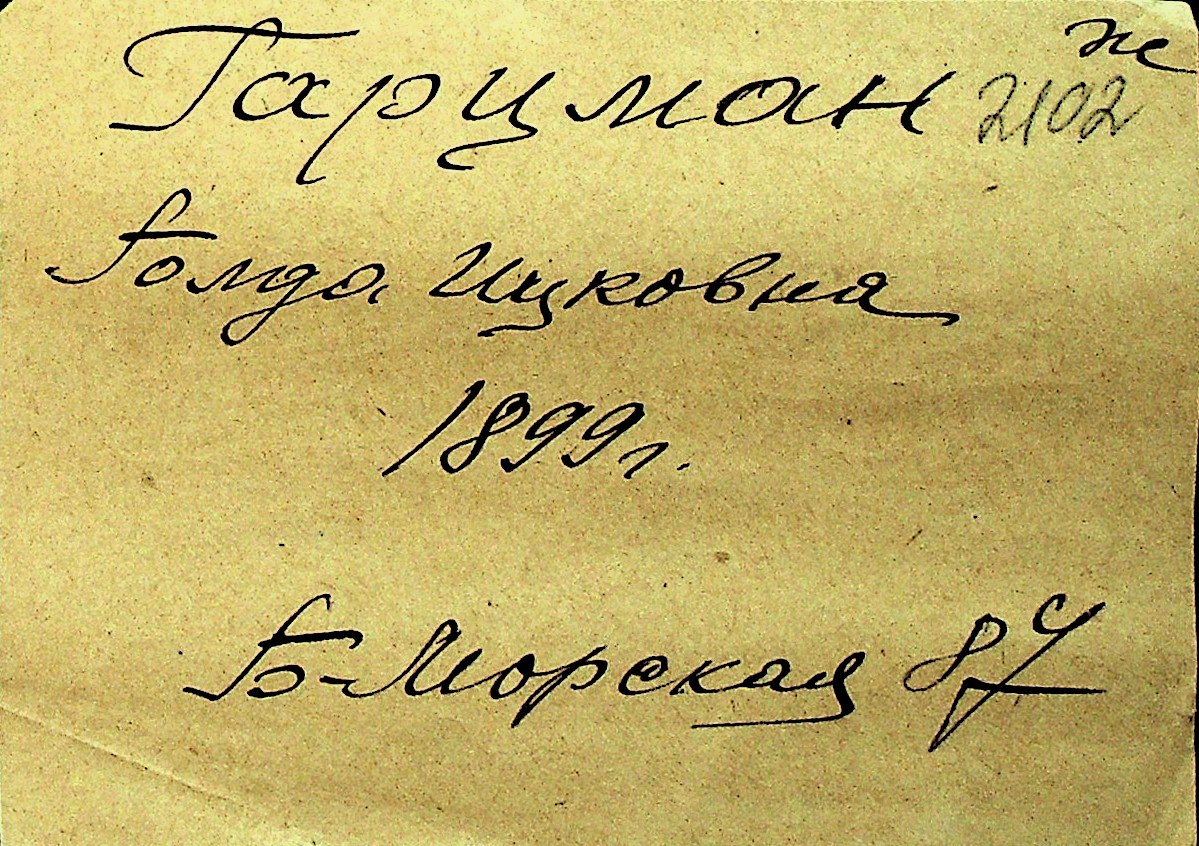 Гарцман
же
2102
Голда Ицковна
1899г.
Б-Морская 87